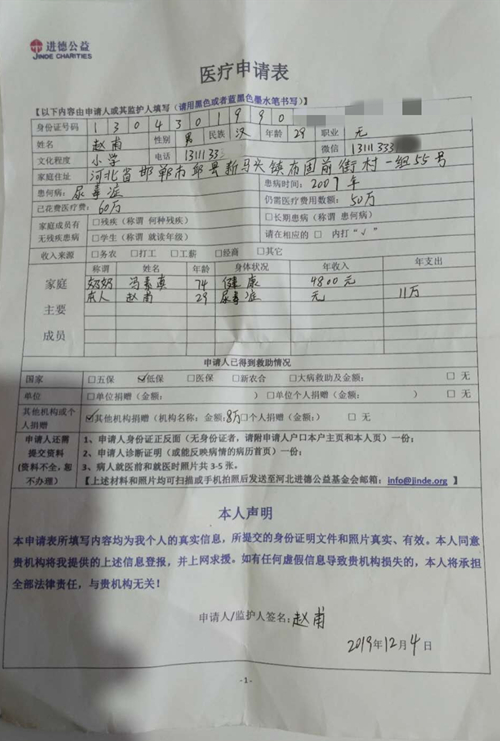 进德公益
JINDE CHARITIES
医疗申请表
【以下内容由申请人或其监护人填写(请用黑色或者蓝黑色墨水笔书写)】
身份证号码 1 3 0 4 3 0 1 9 9 0
姓名 赵甫 性别 男 民族 汉 年龄 29 职业 无
文化程度 小学 电话 1311133 微信 1311133
家庭住址 河北省邯郸市邱县新马头镇布固前街村一组55号
患何病: 尿毒症 患病时间: 2007年
已花费医疗费: 60万 仍需医疗费用数额: 50万
家庭成员有无残疾患病 □残疾(称谓 何种残疾) □长期患病(称谓 患何病)
□学生(称谓 就读年级) 请在相应的 □ 内打"√"
收入来源 □务农 □打工 □工薪 □经商 □其它
家庭主要成员 称谓 姓名 年龄 身体状况 年收入 年支出
奶奶 冯素真 74 健康 4800元
本人 赵甫 29 尿毒症 无 11万
申请人已得到救助情况
国家 □五保 ☑低保 □医保 □新农合 □大病救助及金额: □ 无
单位 □单位捐赠(金额: ) □单位个人捐赠(金额: ) □ 无
其他机构或个人捐赠 ☑其他机构捐赠(机构名称: 金额: 8万 □个人捐赠(金额: ) □ 无
申请人还需提交资料(资料不全,恕不办理)
1、申请人身份证正反面(无身份证者,请附申请人户口本户主页和本人页)一份;
2、申请人诊断证明(或能反映病情的病历首页)一份;
3、病人就医前和就医时照片共 3-5 张。
【上述材料和照片均可扫描或手机拍照后发送至河北进德公益基金会邮箱: info@jinde.org】
本人声明
本申请表所填写内容均为我个人的真实信息,所提交的身份证明文件和照片真实、有效。本人同意
贵机构将我提供的上述信息登报,并上网求援。如有任何虚假信息导致贵机构损失的,本人将承担
全部法律责任,与贵机构无关!
申请人/监护人签名: 赵甫
2019年12月4日
- 1 -